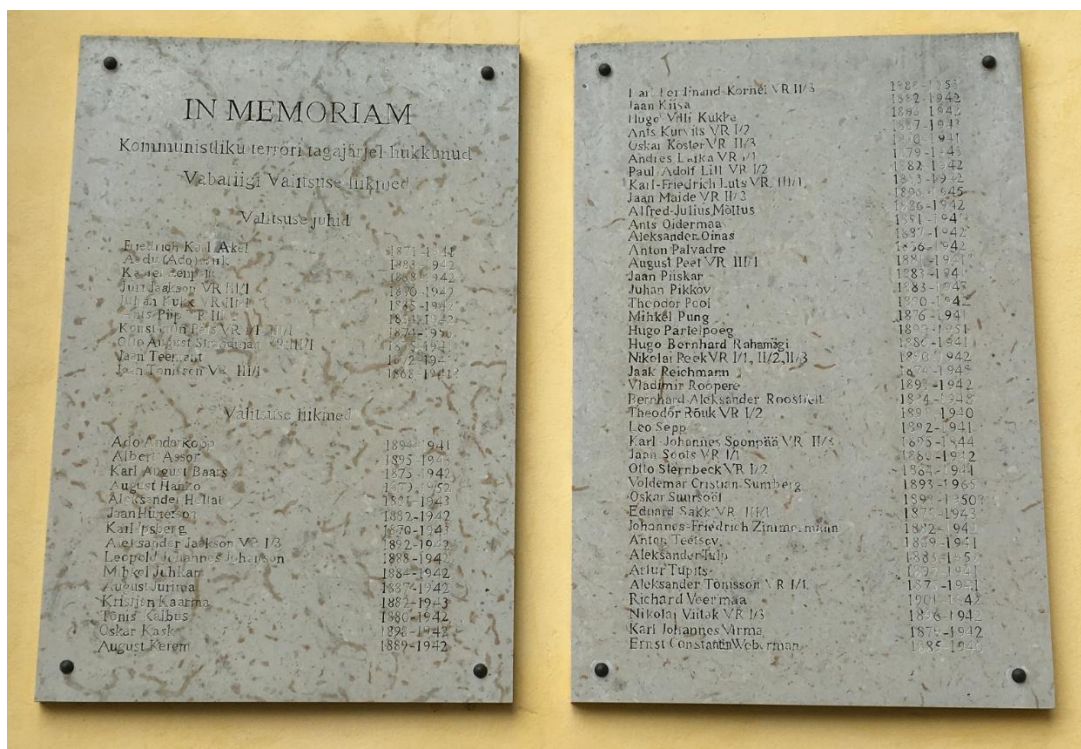 IN MEMORIAM
Kommunistliku terrori tagajärjel hukkunud
Vabariigi Valitsuse liikmed
Valitsuse juhid
Friedrich Karl Akel 1871-1941
Aadu (Ado) Birk 1883-1942
Kaarel Eenpalu 1888-1942
Jüri Jaakson VR III/1 1870-1942
Juhan Kukk VR III/1 1885-1942
Ants Piip VR III/1 1884-1942
Konstantin Päts VR I/1, III/1 1874-1956
Otto August Strandman VR III/1 1875-1941
Jaan Teemant 1872-1941
Jaan Tõnisson VR III/1 1868-1941?
Valitsuse liikmed
Ado Anderkopp 1894-1941
Albert Assor 1895-1943
Karl August Baars 1875-1942
August Hanko 1879-1952
Aleksander Hellat 1881-1943
Jaan Hünerson 1882-1942
Karl Ipsberg 1870-1943
Aleksander Jaakson VR I/3 1892-1942
Leopold Johannes Johanson 1888-1942
Mihkel Juhkam 1884-1942
August Jürima 1887-1942
Kristjan Kaarna 1882-1943
Tõnis Kalbus 1880-1942
Oskar Kask 1898-1942
August Kerem 1889-1942
Karl Ferdinand Kornel VR II/3
Jaan Kriisa 1882-1942
Hugo Villi Kukke 1898-1942
Ants Kurvits VR I/2 1887-1943
Oskar Köster VR II/3 1890-1941
Andres Larka VR I/1 1879-1943
Paul Adolf Lill VR I/2 1882-1942
Karl-Friedrich Luts VR III/1 1883-1942
Jaan Maide VR II/3 1896-1945
Alfred-Julius Mõttus 1886-1942
Ants Oidermaa 1891-1941
Aleksander Oinas 1887-1942
Anton Palvadre 1886-1942
August Peet VR III/1 1881-1941
Jaan Piiskar 1883-1941
Juhan Pikkov
Theodor Pool 1890-1942
Mihkel Pung 1876-1941
Hugo Pärtelpoeg 1899-1951
Hugo Bernhard Rahamägi 1886-1941
Nikolai Reek VR I/1, II/2, II/3 1890-1942
Jaak Reichmann 1874-1945
Vladimir Roopere 1893-1942
Bernhard Aleksander Roostfelt
Theodor Rõuk VR I/2 1891-1940
Leo Sepp 1892-1941
Karl Johannes Soonpää VR II/3 1895-1944
Jaan Soots VR I/1 1880-1942
Otto Sternbeck VR I/2 1884-1941
Voldemar Cristian Sumberg 1893-1965
Oskar Suursööt
Eduard Säkk VR III/1
Johannes-Friedrich Zimmermann 1882-1942
Anton Teetsov 1889-1941
Aleksander Tulp
Artur Tupits 1892-1941
Aleksander Tõnisson VR I/1 1875-1941
Richard Veermaa 1901-1942
Nikolai Viitak VR I/3 1896-1942
Karl Johannes Virma 1879-1942
Ernst Constantin Weberman